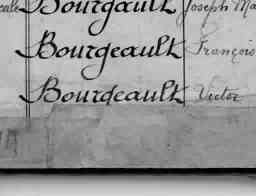 cale Bourgault Joseph Ma
Bourgeault François
Bourgeault Victor